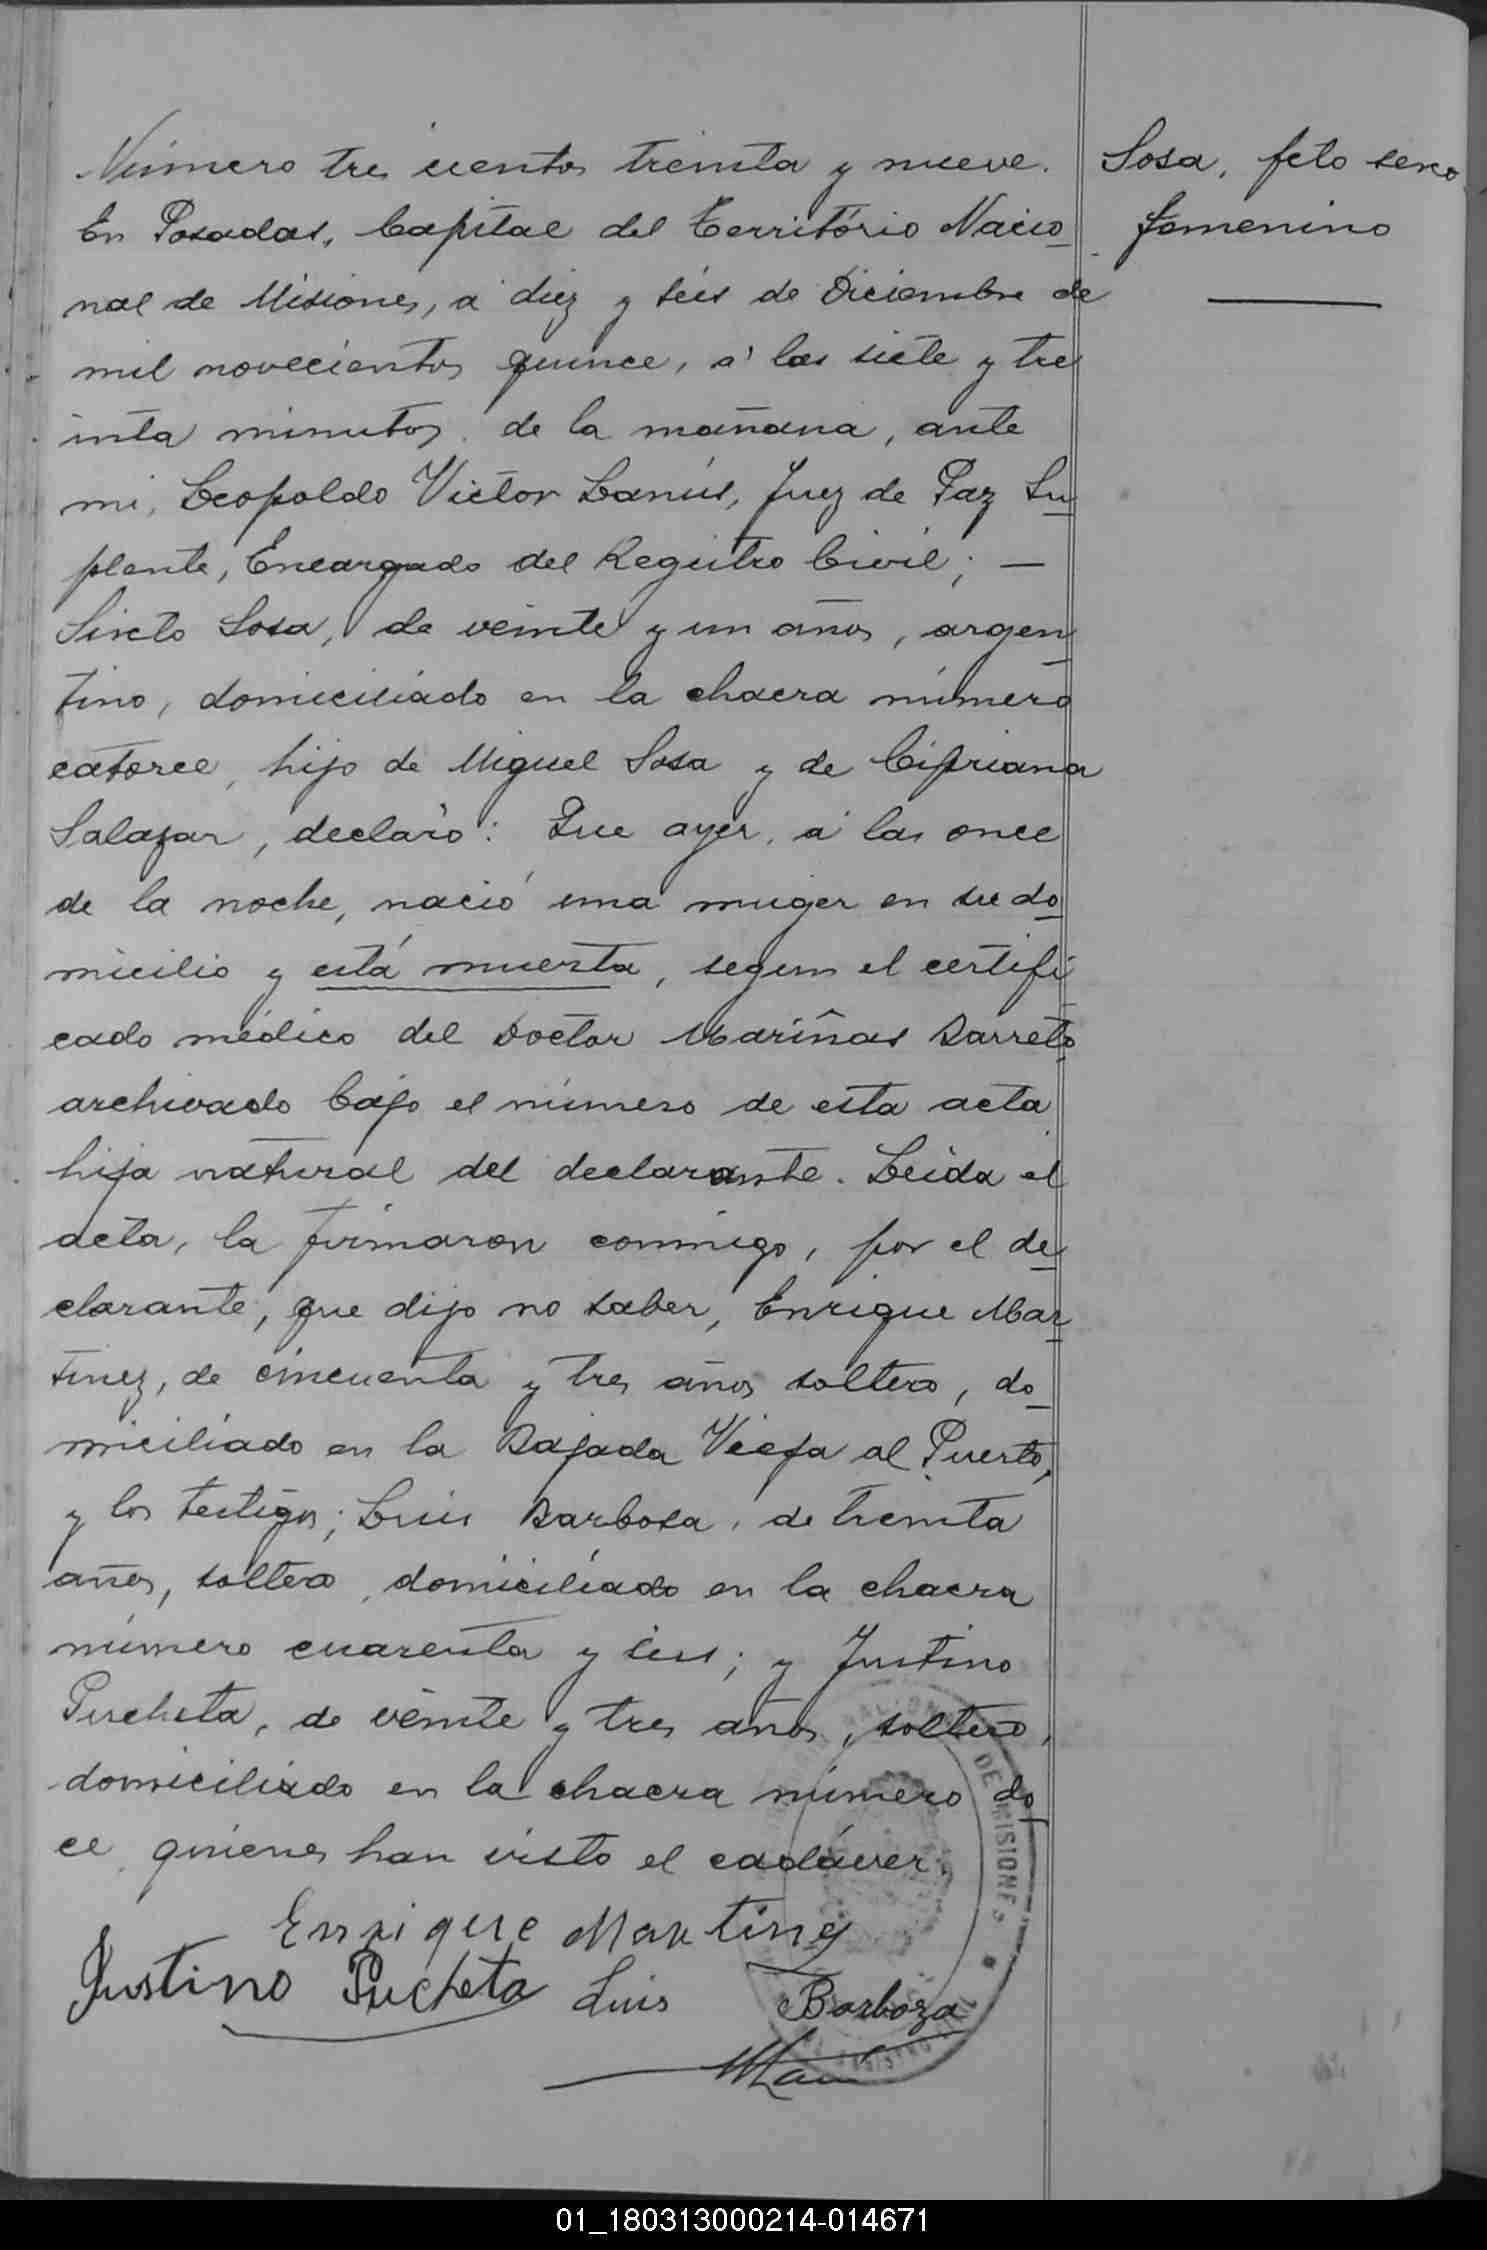 Número tres cientos treinta y nueve.
En Posadas, Capital del Território Nacio
nal de Misiones, á diez y séis de Diciembre de
mil novecientos quince, á las siete y tre
inta minutos de la mañana, ante
mi, Leopoldo Victor Lanús, Juez de Paz Su
plente, Encargado del Registro Civil; —
Sixto Sosa, de veinte y un años, argen
tino, domiciliado en la chacra número
catorce, hijo de Miguel Sosa y de Cipriana
Salazar, declaró: Que ayer, á las once
de la noche, nació una muger en su do
micilio y está muerta, segun el certifi
cado médico del Doctor Mariñas Barreto
archivado bajo el número de esta acta
hija natural del declarante. Leida el
acta, la firmaron conmigo, por el de
clarante, que dijo no saber, Enrique Mar
tinez, de cincuenta y tres años soltero, do
miciliado en la Bajada Vieja al Puerto,
y los testigos; Luis Barbosa, de treinta
años, soltero, domiciliado en la chacra
número cuarenta y seis; y Justino
Pucheta, de veinte y tres años, soltero,
domiciliado en la chacra número do
ce quienes han visto el cadáver.
Enrique Martinez
Justino Pucheta Luis Barboza
Sosa, feto sexo
femenino
DE MISIONES
01_180313000214-014671